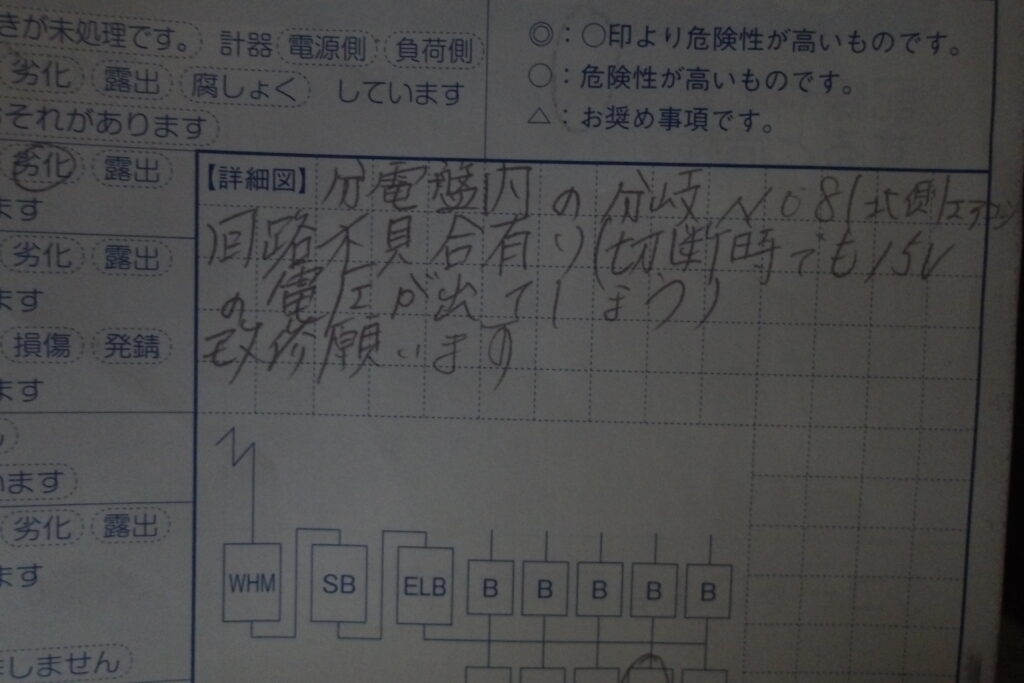 きが未処理です。 計器 電源側 負荷側
劣化 露出 腐しょく しています
おそれがあります
◎：○印より危険性が高いものです。
○：危険性が高いものです。
△：お奨め事項です。
劣化 露出
ます
劣化 露出
ます
損傷 発錆
ます
います
劣化 露出
ます
ましません
【詳細図】 分電盤内の分岐No8(北側エアコン)
回路不具合有り(切断時でも15V
の電圧が出てしまう)
改修願います
WHM SB ELB B B B B B